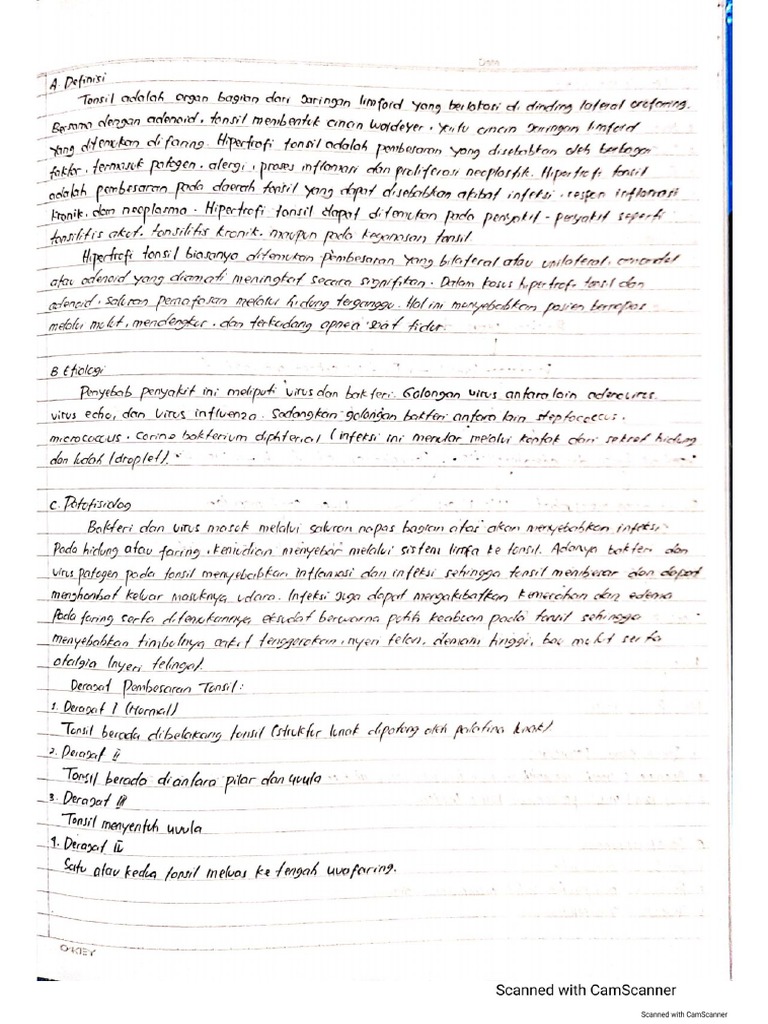 A. Definisi
Tonsil adalah organ bagian dari jaringan limfoid yang berlokasi di dinding lateral orofaring.
Bersama dengan adenoid, tonsil membentuk cincin waldeyer, yaitu cincin jaringan limfoid
yang ditemukan di faring. Hipertrofi tonsil adalah pembesaran yang disebabkan oleh berbagai
faktor, termasuk patogen, alergi, proses inflamasi dan proliferasi neoplastik. Hipertrofi tonsil
adalah pembesaran pada daerah tonsil yang dapat disebabkan akibat infeksi, respon inflamasi
kronik, dan neoplasma. Hipertrofi tonsil dapat ditemukan pada penyakit-penyakit seperti
tonsilitis akut, tonsilitis kronik, maupun pada keganasan tonsil.
Hipertrofi tonsil biasanya ditemukan pembesaran yang bilateral atau unilateral,
atau adenoid yang diamati meningkat secara signifikan. Dalam kasus hipertrofi tonsil dan
adenoid, saluran pernafasan melalui hidung terganggu. Hal ini menyebabkan pasien bernapas
melalui mulut, mendengkur, dan terkadang apnea saat tidur.
B Etiologi
Penyebab penyakit ini meliputi virus dan bakteri. Golongan virus antara lain adenovirus,
virus echo, dan virus influenza. Sedangkan golongan bakteri antara lain steptococcus,
micrococcus, corine bakterium diphterial (infeksi ini menular melalui kontak dari sekret hidung
dan ludah (droplet).
C. Patofisiolog
Bakteri dan virus masuk melalui saluran napas bagian atas akan menyebabkan infeksi
Pada hidung atau faring, kemudian menyebar melalui sistem limfa ke tonsil. Adanya bakteri dan
virus patogen pada tonsil menyebabkan inflamasi dan infeksi sehingga tonsil membesar dan dapat
menghambat keluar masuknya udara. Infeksi juga dapat mengakibatkan kemerahan dan edema
Pada faring serta ditemukannya eksudat berwarna putih keabuan pada tonsil sehingga
menyebabkan timbulnya sakit tenggorokan, nyeri telan, demam tinggi, bau mulut serta
otalgia (nyeri telinga).
Derajat Pembesaran Tonsil:
1. Derajat I (Normal)
Tonsil berada dibelakang tonsil (struktur lunak dipotong oleh palatina lunak).
2. Derajat II
Tonsil berada diantara pilar dan uvula
3. Derajat III
Tonsil menyentuh uvula
4. Derajat IV
Satu atau kedua tonsil meluas ke tengah uvofaring.
Scanned with CamScanner
Scanned with CamScanner